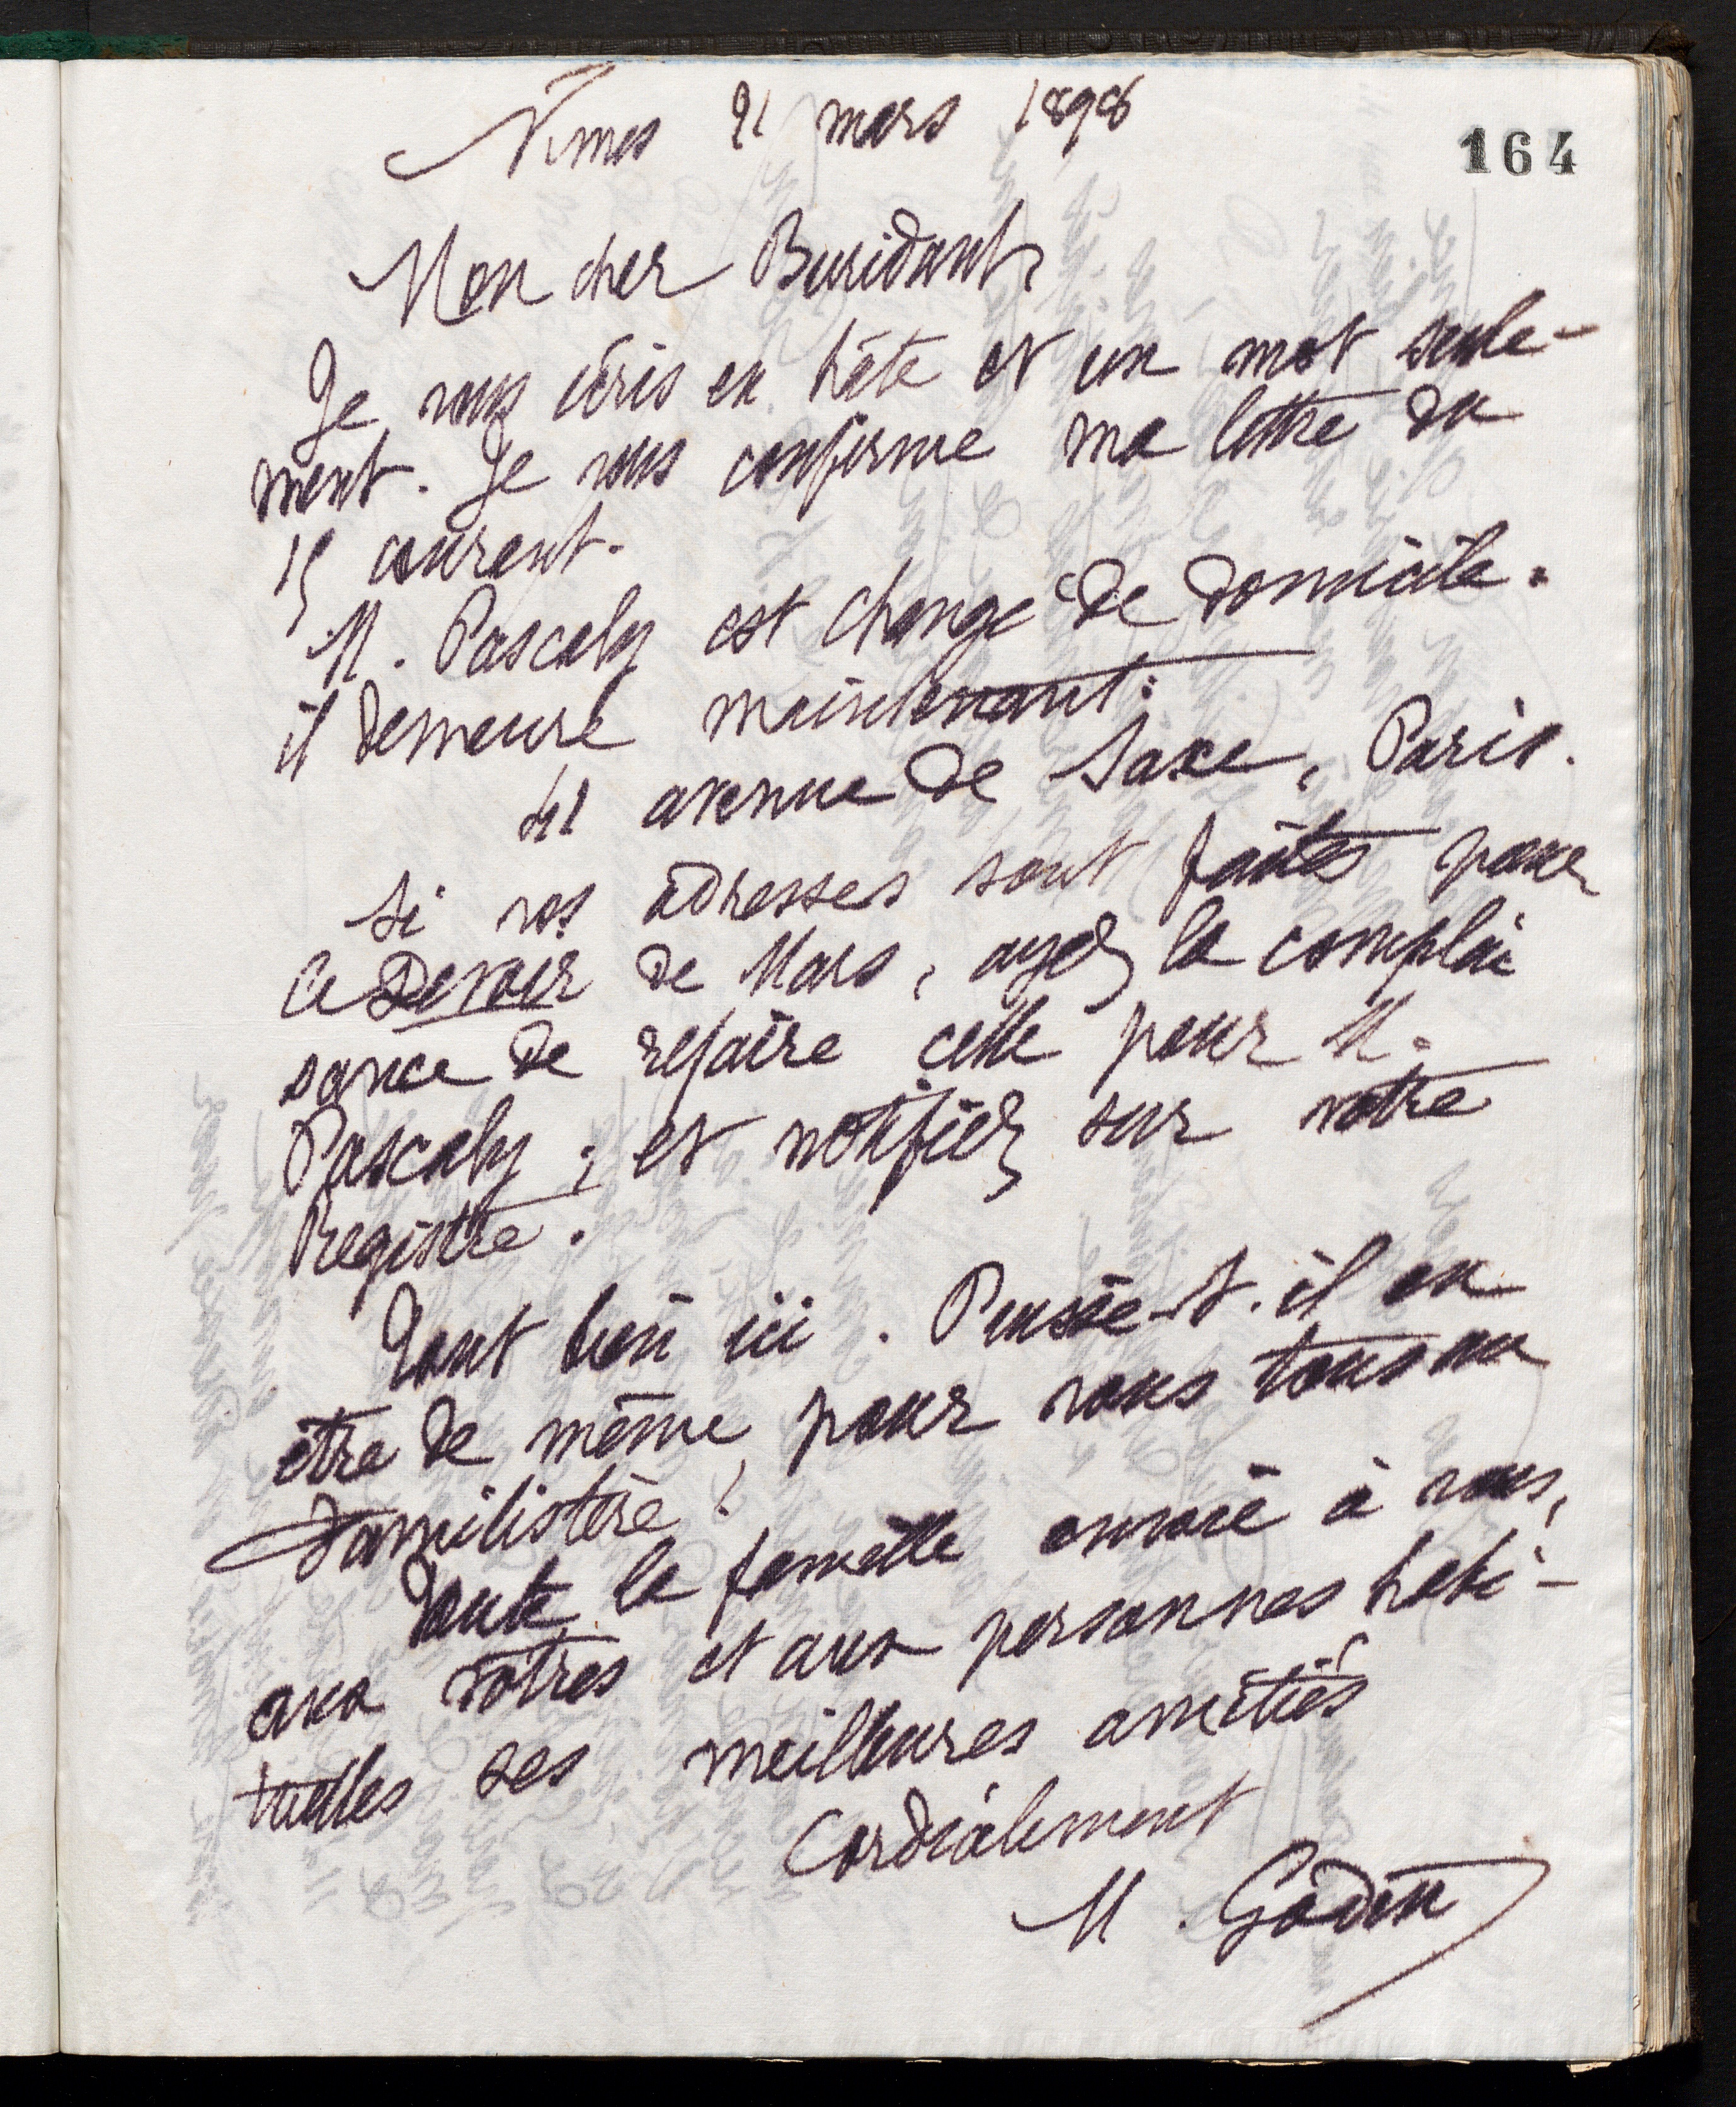 Nîmes 21 mars 1898
164
Mon cher Buridant,
Je vous écris en hâte et un mot seule-
ment. Je vous confirme ma lettre du
15 courant.
M. Pascaly est changé de domicile.
il demeure maintenant :
41 avenue de Saxe, Paris.
Si vos adresses sont faites pour
le Devoir de Mars, ayez la complai
sance de refaire celle pour M.
Pascaly ; et notifiez sur votre
Registre.
Tout bien ici. Puisse-t-il en
être de même pour vous tous au
Familistère !
Toute la famille envoie à vous,
aux vôtres et aux personnes habi-
tuelles ses meilleures amitiés
Cordialement
M. Godin